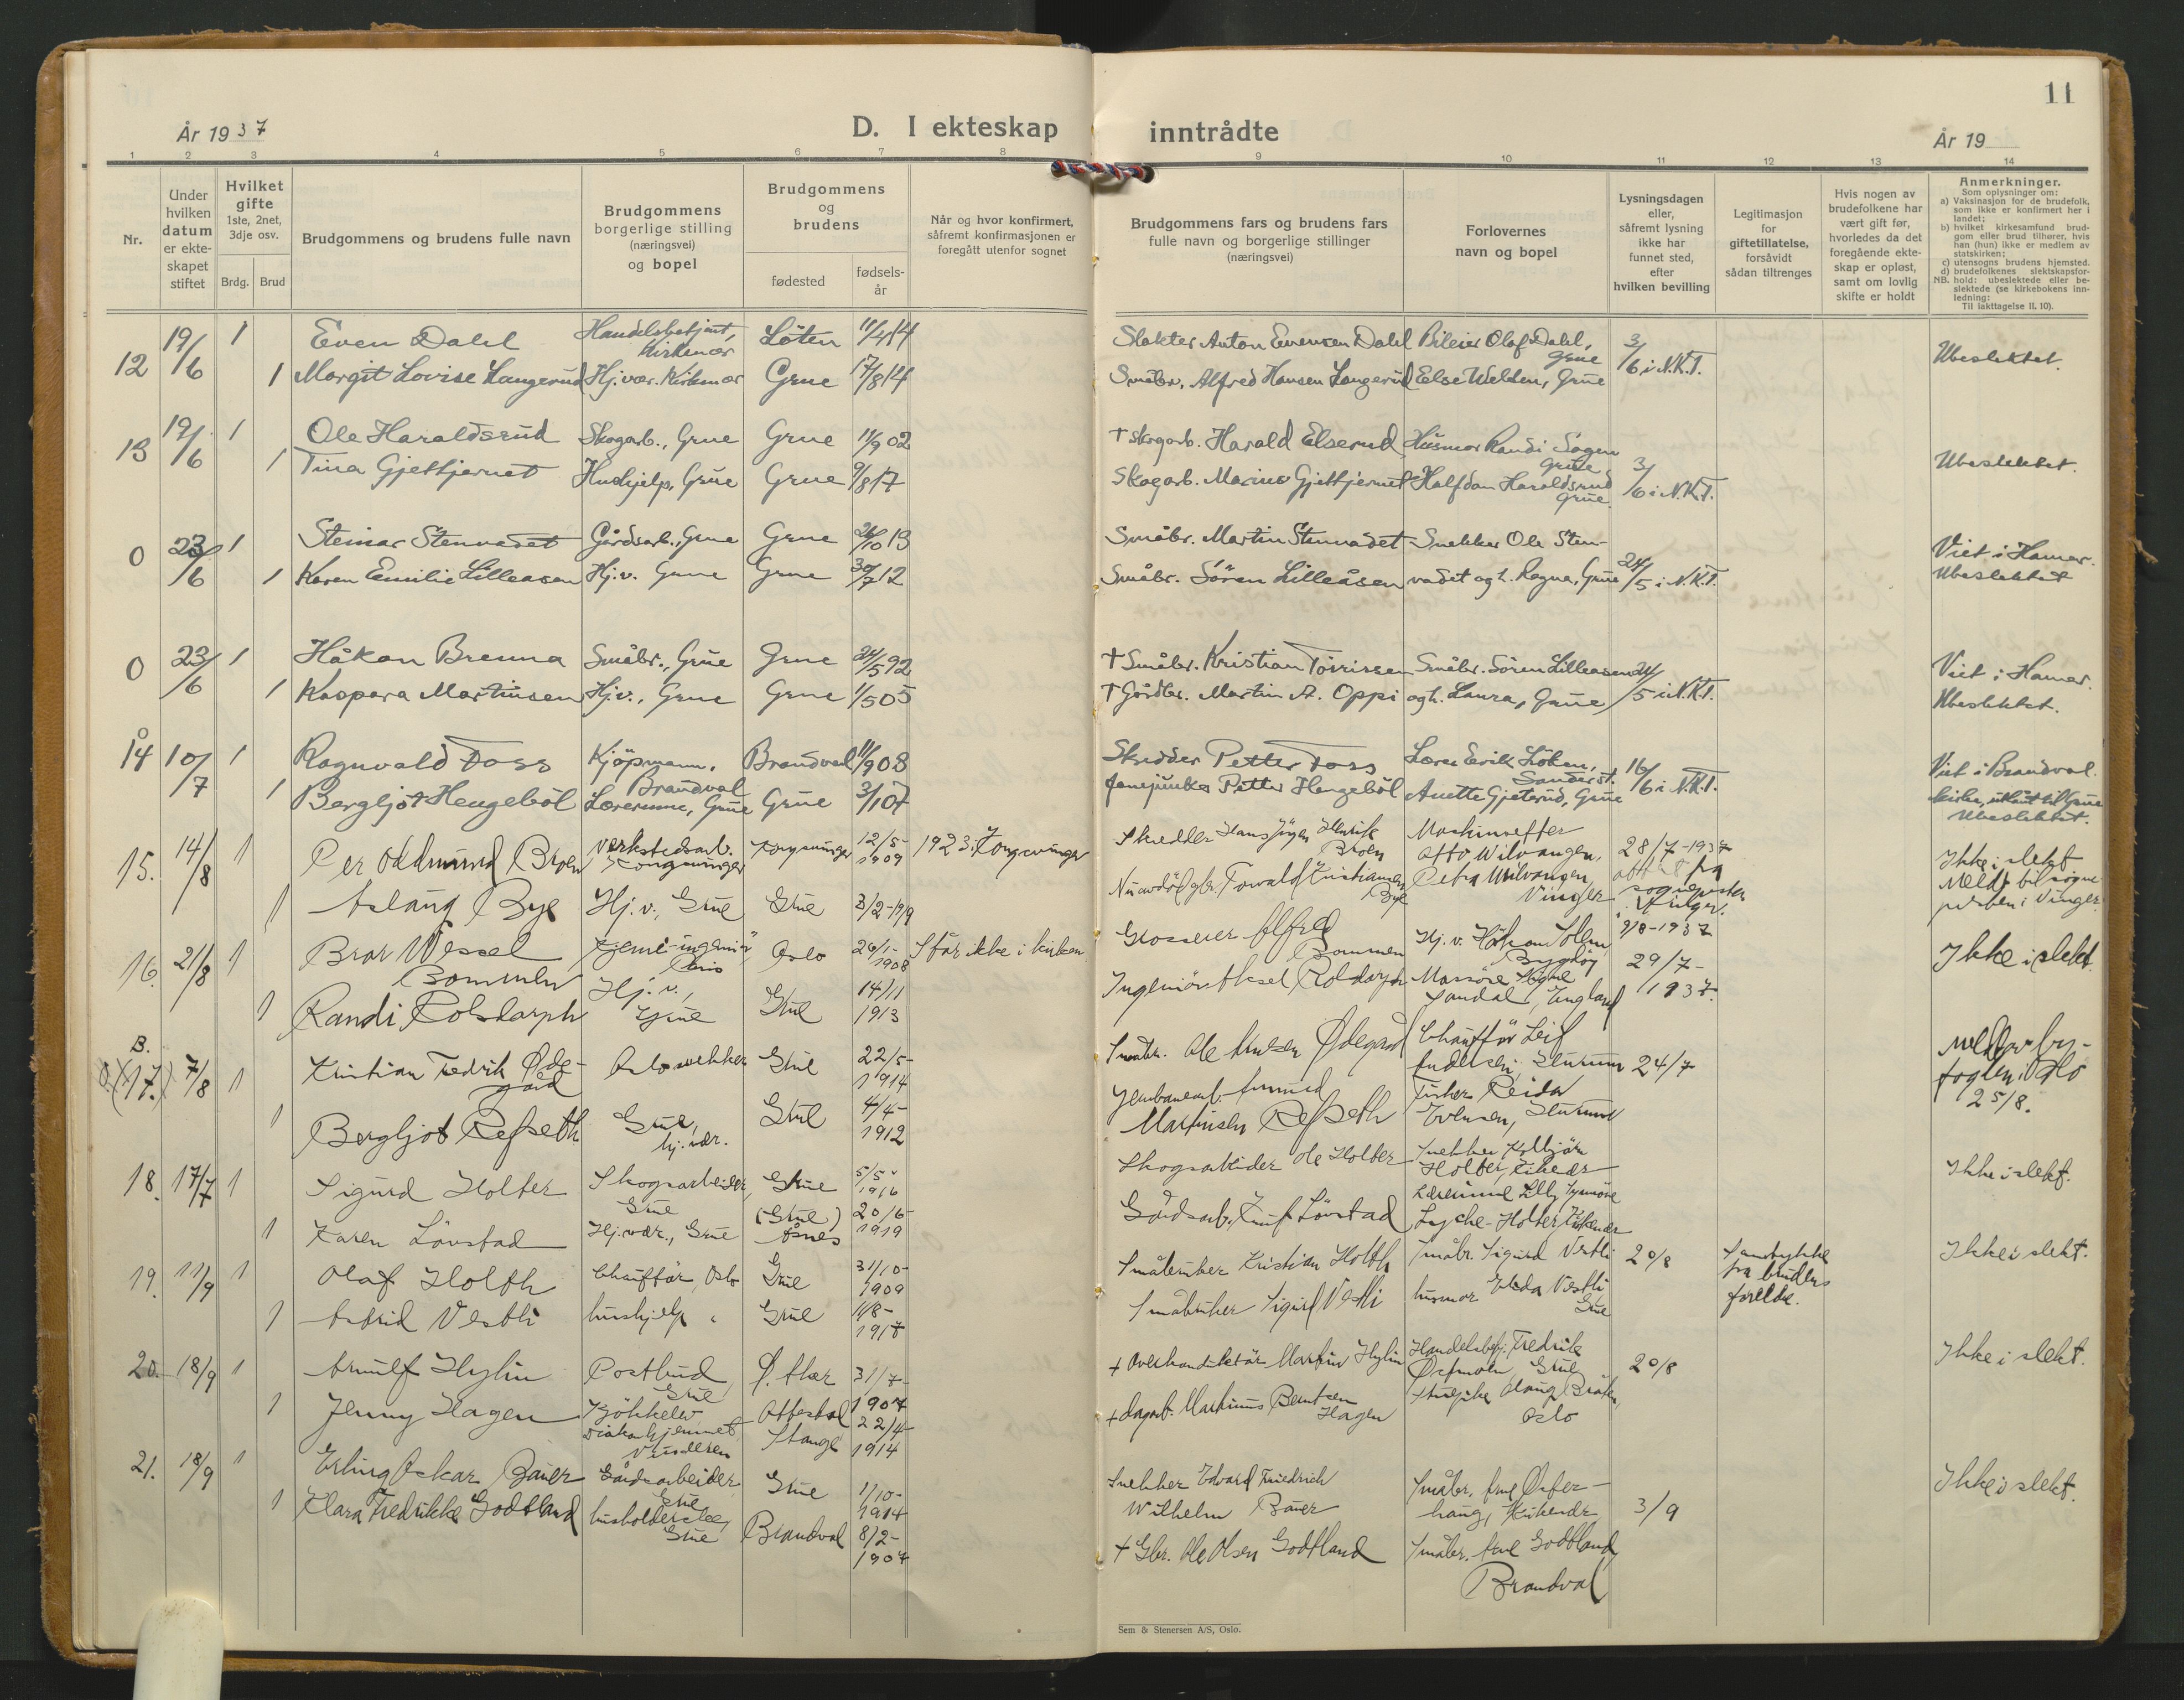 År 1937
D. I ekteskap inntrådte
År 19
11
1 2 3 4 5 6 7 8 9 10 11 12 13 14
Nr.
Under hvilken datum er ekteskapet stiftet
Hvilket gifte 1ste, 2net, 3dje osv.
Brdg. Brud
Brudgommens og brudens fulle navn
Brudgommens borgerlige stilling (næringsvei) og bopel
Brudgommens og brudens
fødested
fødsels-år
Når og hvor konfirmert, såfremt konfirmasjonen er foregått utenfor sognet
Brudgommens fars og brudens fars fulle navn og borgerlige stillinger (næringsvei)
Forlovernes navn og bopel
Lysningsdagen eller, såfremt lysning ikke har funnet sted, efter hvilken bevilling
Legitimasjon for giftetillatelse, forsåvidt sådan tiltrenges
Hvis nogen av brudefolkene har vært gift før, hvorledes da det foregående ekteskap er opløst, samt om lovlig skifte er holdt
Anmerkninger.
Som oplysninger om:
a) Vaksinasjon for de brudefolk, som ikke er konfirmert her i landet;
b) hvilket kirkesamfund brudgom eller brud tilhører, hvis han (hun) ikke er medlem av statskirken;
c) utensogns brudens hjemsted.
d) brudefolkenes slektskapsforhold: ubeslektede eller beslektede (se kirkebokens innledning:
NB.
Til iakttagelse II. 10).
12 19/6 1 Even Dahl Handelsbetjent, Kirkenær Löten 11/4 14 Slakter Anton Evensen Dahl Bileier Olaf Dahl, Grue 3/6 i N.K.T. Ubeslektet.
1 Margit Lovise Langerud Hj.vær. Kirkenær Grue 17/8 14 Småbr. Alfred Hansen Langerud Else Welden, Grue
13 19/6 1 Ole Haraldsrud Skogarb., Grue Grue 11/9 02 † Skogarb. Harald Elserud Husmor Randi Sagen Grue 3/6 i N.K.T. Ubeslektet.
1 Tina Gjettjernet Hushjelp, Grue Grue 9/8 17 Skogarb. Marius Gjettjernet Halfdan Haraldsrud Grue
0 23/6 1 Steinar Stenvadet Gårdsarb., Grue Grue 26/10 13 Småbr. Martin Stenvadet Snekker Ole Sten- Viet i Hamar.
1 Karen Emilie Lilleåsen Hj.v. Grue Grue 30/7 12 Småbr. Sören Lilleåsen vadet og h. Ragna, Grue 24/5 i N.K.T. Ubeslektet
0 23/6 1 Håkon Brenna Småbr., Grue Grue 24/5 92 † Småbr. Kristian Torrissen Småbr. Sören Lilleåsen 24/5 i N.K.T. Viet i Hamar.
1 Kaspara Martinsen Hj.v., Grue Grue 1/5 05 † Gårdbr. Martin A. Oppi og h. Laura, Grue Ubeslektet.
0
14 10/7 1 Ragnvald Foss Kjöpmann, Brandval Brandval 11/9 08 Skredder Petter Foss Lærer Erik Löken, Sander st. 16/6 i N.K.T. Viet i Brandval
1 Bergljot Hengeböl Lærerinne, Grue Grue 3/1 07 Fanejunker Petter Hengeböl Anette Gjeterud, Grue kirke, utlånt til Grue Ubeslektet.
15. 14/8 1 Per Oddmund Broen Verkstedsarb. Kongsvinger Kongsvinger 12/5-1909 1923: Kongsvinger Skredder Hans Jörgen Henrik Broen Maskinsetter Otto Wilvangen, 28/7-1937 Ikke i slekt
1 Aslaug Bye Hj.v., Grue Grue 3/2-1919 gbr. Torvald Kristiansen Bye Petra Wilvangen, Vinger attest fra sognepresten Vinger. 9/8-1937 Meldt til sognepresten i Vinger.
16. 21/8 1 Bror Wessel Bommen Kjemi-ingeniör, Paris Oslo 26/1-1908 Står ikke i kirken Grosserer Alfred Bommen Hj.v. Håkon Solem, Bygdöy 29/7-1937. Ikke i slekt.
1 Randi Rolsdorph Hj.v., Grue Grue 14/11 1913 Ingeniör Aksel Rolsdorph Massöse Signe Sandal, England
B.
0.(17.) 7/8 1 Kristian Fredrik Ödegård Oslo snekker Grue 22/5-1914 Småbr. Ole Ödegård Chaufför Leif Andersen, 24/7 Meldt av byfogden i Oslo 25/8.
1 Bergljot Refseth Grue, hj.vær. Grue 4/4-1912 Jernbanearb. Amund Martinsen Refseth Fisker Reidar Evensen,
18. 17/7 1 Sigurd Holter Skogsarbeider, Grue Grue 5/5-1916 Skogsarbeider Ole Holter Snekker Kolbjörn Holter, Kirkenær Ikke i slekt.
1 Karen Lövstad Hj.vær., Grue (Grue) Åsnes 20/6-1919 Gårdsarb. Knut Lövstad Lærerinne Lilly Lyche-Holter Kirkenær
19. 11/9 1 Olaf Holth Chaufför, Oslo Grue 31/10-1909 Småbruker Kristian Holth Småbr. Sigurd Vestli 20/8 Samtykke fra brudens foreldre. Ikke i slekt.
1 Astrid Vestli hushjelp " Grue 11/8-1918 Småbruker Sigurd Vestli husmor Vestli Grue
20. 18/9 1 Arnulf Hylin Postbud Grue Ö. Aker 31/7-1907 + Overkonduktör Martin Hylin Handelsbetj. Fredrik Östmoen Grue 20/8 Ikke i slekt.
1 Jenny Hagen Kjökkelev, Diakonhjemmet Vinderen Ottestad Stange 22/4-1914 + dagarb. Martinus Berntsen Hagen Oslo
21. 18/9 1 Erling Oskar Bauer Gårdsarbeider Grue Grue 1/10-1914 Snekker Edvard Friedrich Wilhelm Bauer Småbr. Arne Österhaug, Kirkenær 3/9 Ikke i slekt.
1 Klara Fredrikke Godtland husholderske, Grue Brandval 8/2-1907 + Gbr. Ole Olsen Godtland Småbr. Arne Godtland, Brandval
Sem & Stenersen A/S, Oslo.